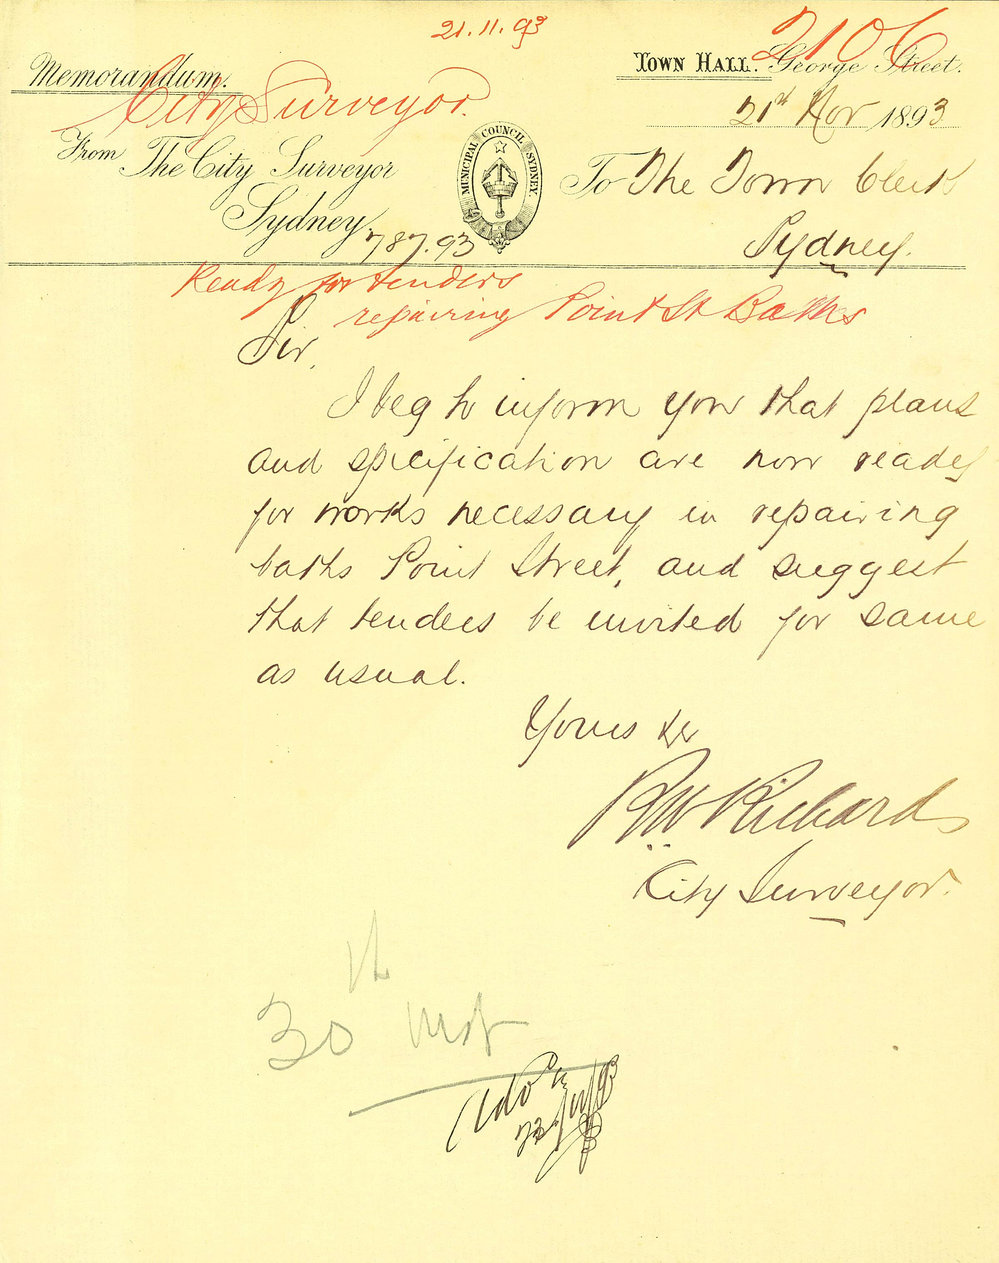 21.11.93
2106
Memorandum.
Town Hall. George Street.
City Surveyor.
21st Nov 1893
From The City Surveyor
Sydney
787.93
MUNICIPAL COUNCIL SYDNEY.
To The Town Clerk
Sydney.
Ready for tenders
repairing Point St Baths
Sir,
I beg to inform you that plans
and specification are now ready
for works necessary in repairing
baths Point Street, and suggest
that tenders be invited for same
as usual.
Yours &c
R W Richards
City Surveyor.
30th inst